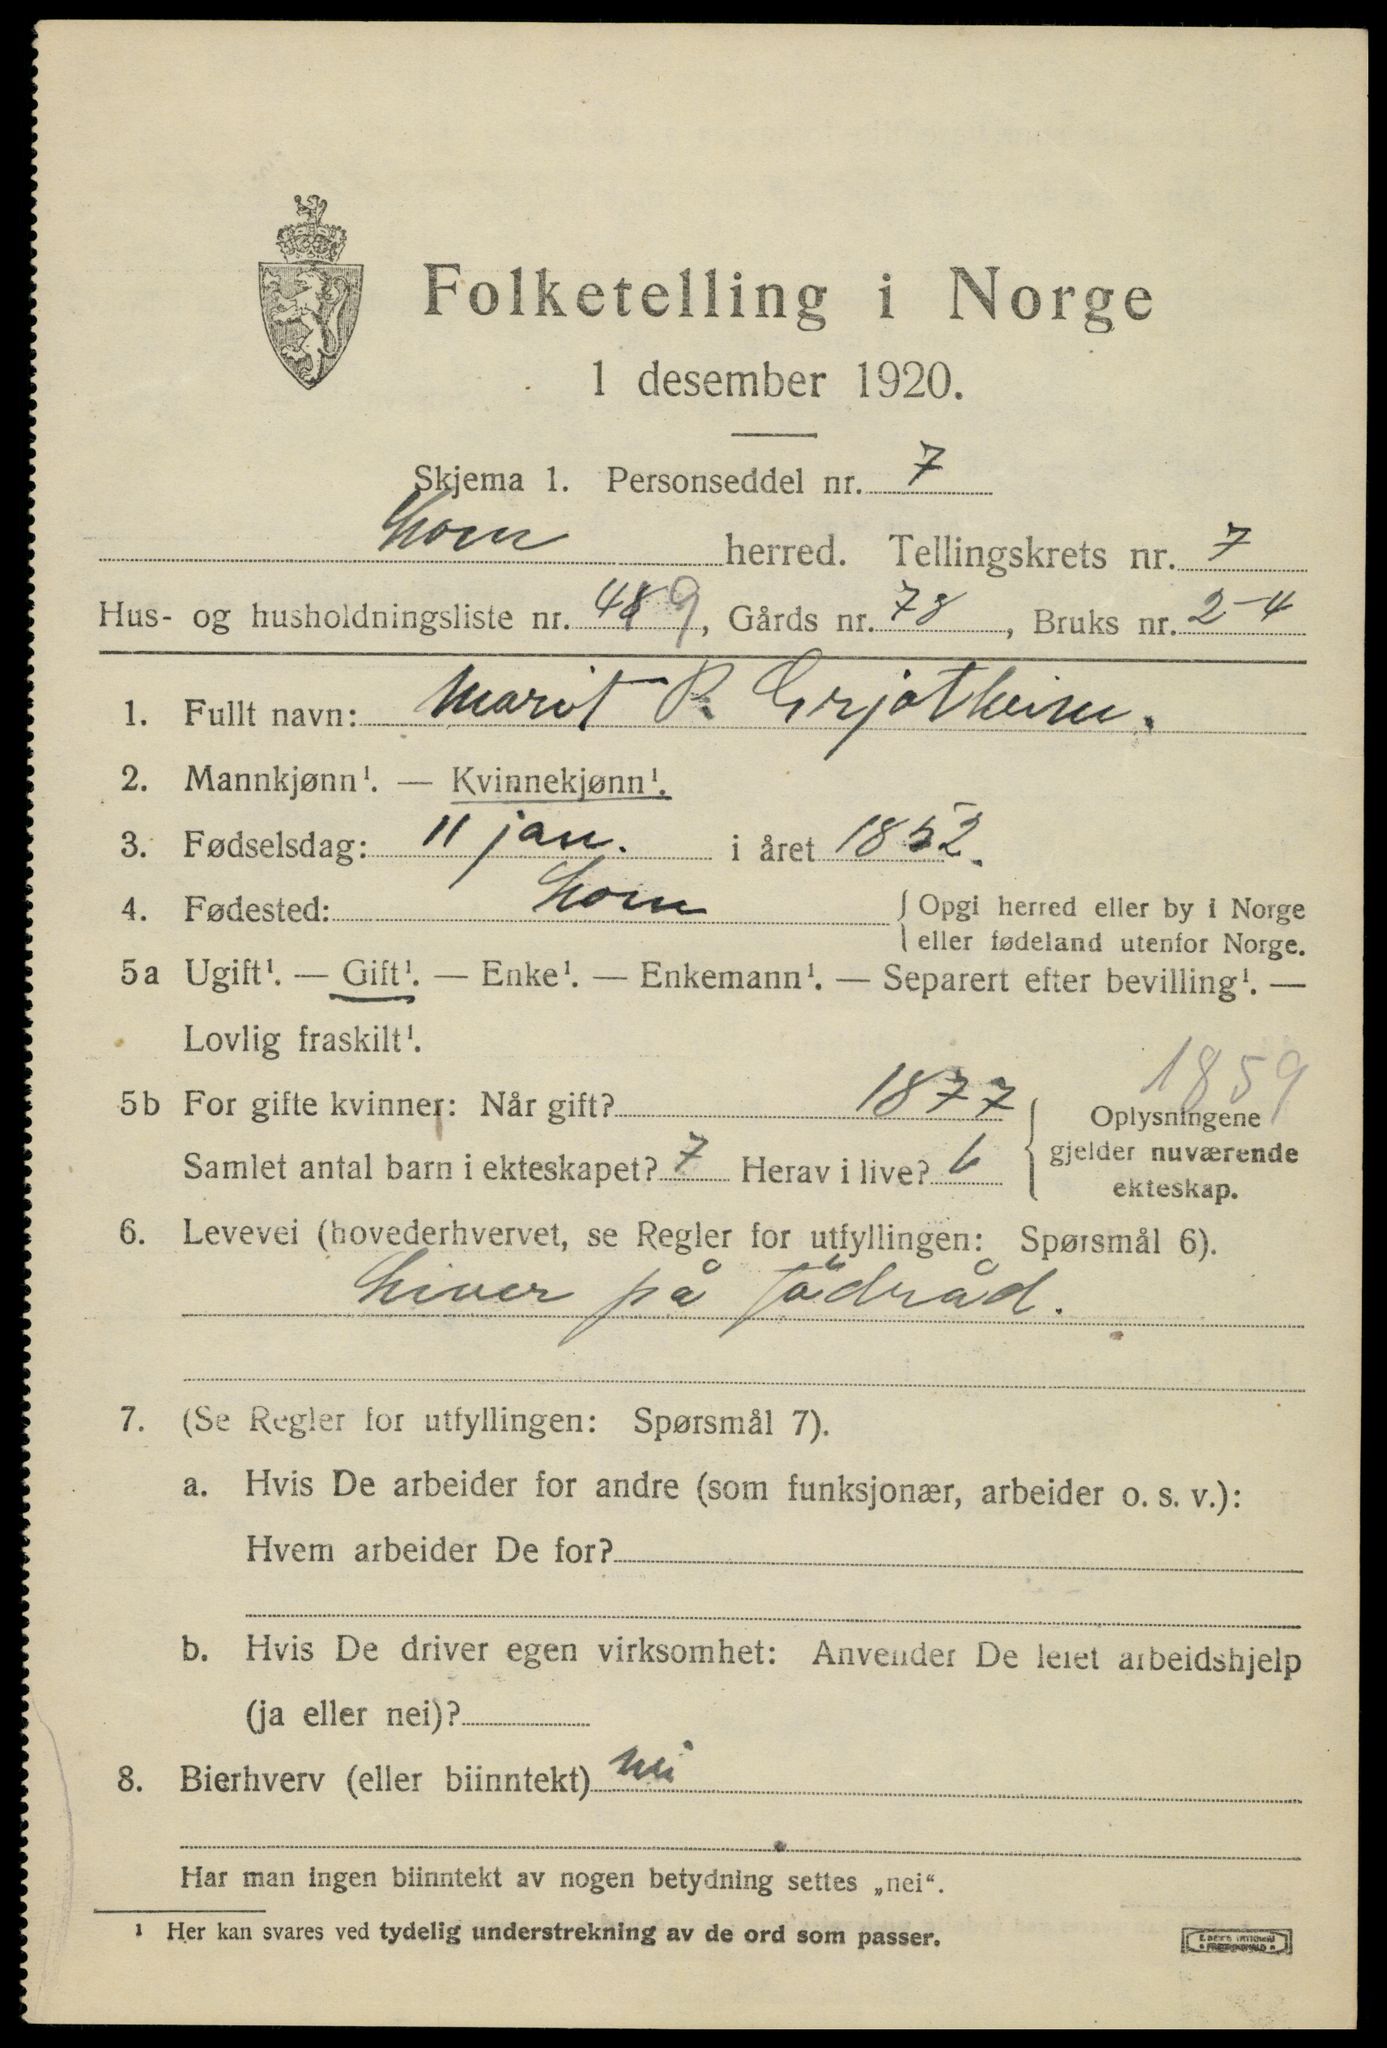 Folketelling i Norge
1 desember 1920.
Skjema 1. Personseddel nr. 7
Lom herred. Tellingskrets nr. 7
Hus- og husholdningsliste nr. 489, Gårds nr. 78, Bruks nr. 2-4
1. Fullt navn: Marit R. Grjotheim.
2. Mannkjønn¹. — Kvinnekjønn¹.
3. Fødselsdag: 11 jan. i året 1852.
4. Fødested: Lom { Opgi herred eller by i Norge
eller fødeland utenfor Norge.
5a Ugift¹. — Gift¹. — Enke¹. — Enkemann¹. — Separert efter bevilling¹. —
Lovlig fraskilt¹.
1859
5b For gifte kvinner: Når gift? 1877
Samlet antal barn i ekteskapet? 7 Herav i live? 6
{ Oplysningene
gjelder nuværende
ekteskap.
6. Levevei (hovederhvervet, se Regler for utfyllingen: Spørsmål 6).
Liver på födråd.
7. (Se Regler for utfyllingen: Spørsmål 7).
a. Hvis De arbeider for andre (som funksjonær, arbeider o. s. v.):
Hvem arbeider De for?
b. Hvis De driver egen virksomhet: Anvender De leiet arbeidshjelp
(ja eller nei)?
8. Bierhverv (eller biinntekt) nei
Har man ingen biinntekt av nogen betydning settes „nei“.
¹ Her kan svares ved tydelig understrekning av de ord som passer.